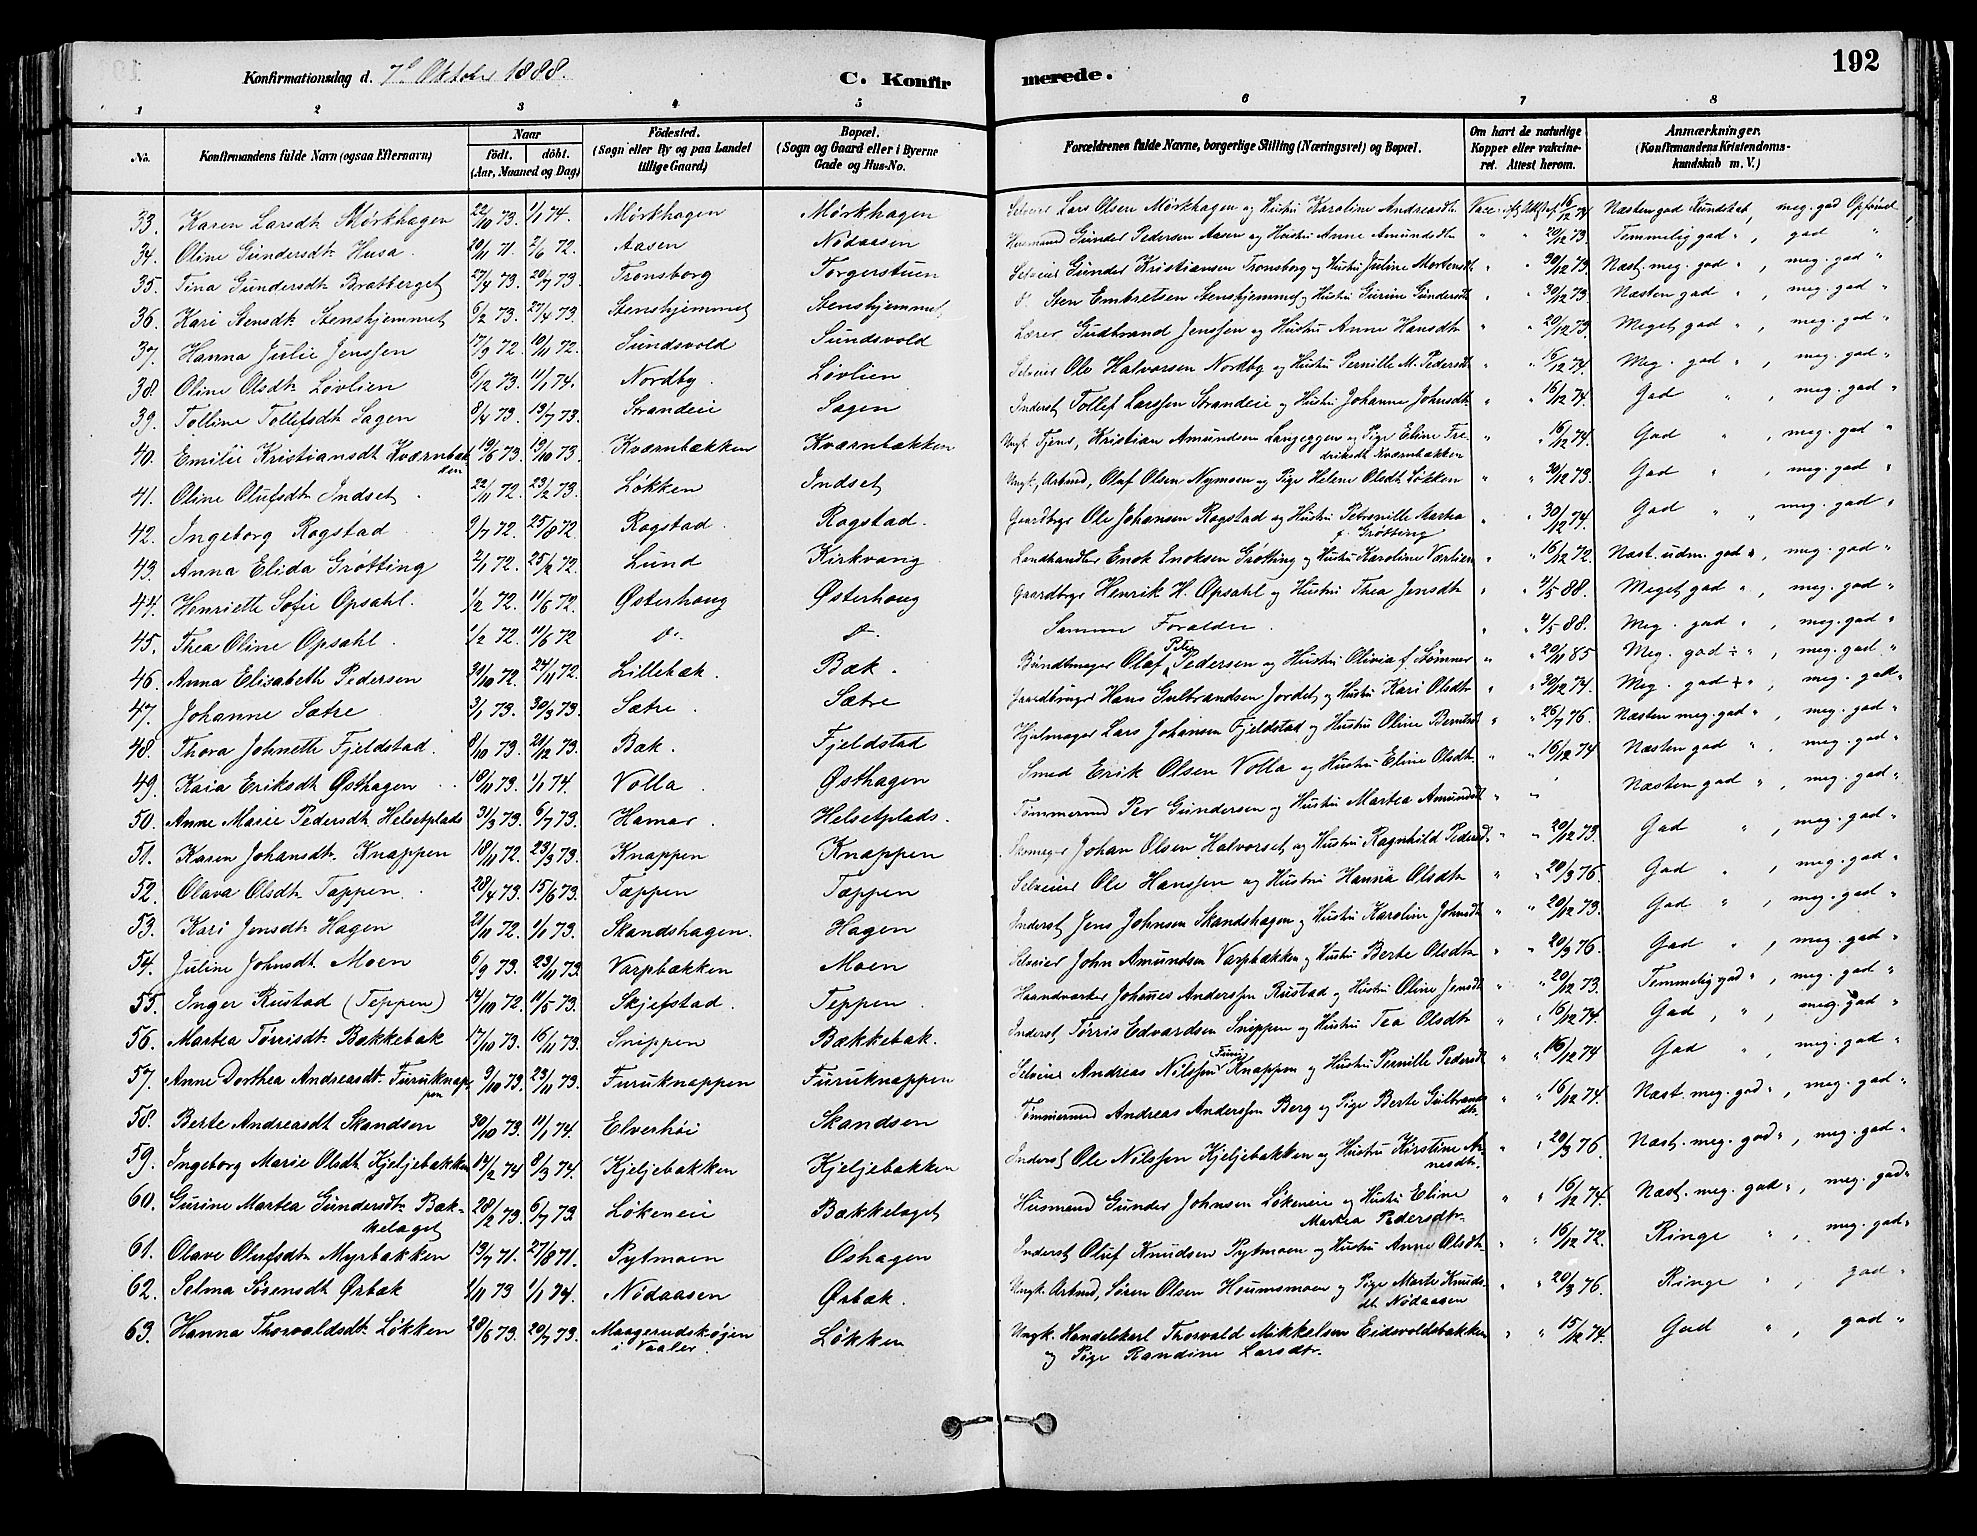 192
Konfirmationsdag d. 7de Oktober 1888.
C. Konfirmerede.
1 2 3 4 5 6 7 8
No.
Konfirmandens fulde Navn (ogsaa Efternavn)
Naar
födt. döbt.
(Aar, Maaned og Dag)
Födested.
(Sogn eller By og paa Landet
tillige Gaard)
Bopæl.
(Sogn og Gaard eller i Byerne
Gade og Hus-No.
Forældrenes fulde Navne, borgerlige Stilling (Næringsvei) og Bopæl.
Om havt de naturlige
Kopper eller vaccine-
ret. Attest herom.
Anmærkninger.
(Konfirmandens Kristendoms-
kundskab m. V.)
33. Karen Larsdt. Mørkhagen 22/10 73. 1/1 74. Mørkhagen Mørkhagen Selveier Lars Olsen Mørkhagen og Hustru Karoline Andreasdtr Vacc. 16/12 74 Næsten god Kundskab, meg. god Opførsel
34. Oline Gundersdt. Husa. 20/11 71. 2/6 72. Aasen Nodaasen Husmand Gunder Pedersen Aasen og Hustru Anne Amundsdtr " " 20/12 73. Temmelig god ", god "
35. Tina Gundersdt. Bratberget 27/4 73. 20/7 73. Tronsborg Torgerstuen Selveier Gunder Kristiansen Tronsborg og Hustru Juline Mortensdt " " 30/12 73. Næst. meg. god ", meg. god "
36. Kari Stensdt. Stenshjemmet 6/2 73. 27/4 73. Stenshjemmet Stenshjemmet Sten Embretsen Stenshjemmet og Hustru Gurine Gundersdt " " 30/12 73. Næsten god ", meg. god "
37. Hanna Julie Jenssen 17/9 72. 10/11 72. Sundsvold Sundsvold Lærer Gudbrand Jenssen og Hustru Anne Hansdtr " " 20/12 73 Meget god ", meg. god "
38. Oline Olsdt. Løvlien 6/12 73. 11/1 74. Nordby. Løvlien Selveier Ole Halvorsen Nordby og Hustru Pernille M. Pedersdt " " 16/12 74. Meg. god ", meg. god "
39. Tolline Tollefsdt. Sagen 8/4 73. 13/7 73. Strandeie Sagen Inderst Tollef Larssen Strandeie og Hustru Johanne Johnsdt " " 16/12 74. God ", meg. god "
40. Emilie Kristiansdt Kværnbæk- 19/6 73. 19/10 73. Kværnbækken Kværnbækken Ungk. Tjener, Kristian Amundsen Langeggen og Pige Eline Fre- " " 16/12 74. God ", meg. god "
ken driksdt Kværnbækken
41. Oline Olufsdt. Indset 22/11 72. 23/2 73. Løkken Indset Ungk., Arbmd, Olaf Olsen Nymoen og Pige Helene Olsdt Løkken " " 30/12 73. God ", meg. god "
42. Ingeborg Rogstad 9/7 72. 25/8 72. Rogstad. Rogstad. Gaardbrgr Ole Johansen Rogstad og Hustru Petronille Martea " " 30/12 74. God ", meg. god "
f. Grøtting
43. Anna Elida Grøtting 2/1 72. 25/2 72. Lund Kirkvang Landhandler Enok Enoksen Grøtting og Hustru Karoline Værlien " " 16/12 72. Næst. udm. god ", meg. god "
44. Henriette Sofie Opsahl. 1/2 72. 11/6 72. Østerhaug Østerhaug Gaardbrgr Henrik H. Opsahl og Hustru Thea Jensdt " " 4/5 88. Meget god ", meg. god "
45. Thea Oline Opsahl. 1/2 72. 11/6 72 Do. Do. Samme Forældre. " " 4/5 88. Meg. god ", meg. god "
46. Anna Elisabeth Pedersen 31/10 72. 24/11 72. Lillebæk. Bæk. Bundtmager Olaf Peter Pedersen og Hustru Olivia f. Stømner " " 20/11 85 Meg. god ÷ ", meg. god "
47. Johanne Sætre 3/1 73. 30/3 73. Sætre. Sætre Gaardbruger Hans Gulbrandsen Jordet og Hustru Kari Olsdt " " 30/12 74. Meg. god + ", meg. god "
48. Thora Johnette Fjeldstad. 8/10 73. 21/12 73. Bæk. Fjeldstad Hjulmager Lars Johansen Fjeldstad og Hustru Oline Berntsdt " " 26/7 76. Næsten meg. god ", meg. god "
49. Kaia Eriksdt Østhagen 18/11 73. 1/1 74. Volla. Østhagen Smed Erik Olsen Volla og Hustru Eline Olsdt. " " 16/12 74 Næsten god ", meg. god "
50. Anne Marie Pedersdt. Helsetplads 31/3 73. 6/7 73. Hamar. Helsetplads. Tømmermd Per Gundersen og Hustru Martea Amundsdt " " Næsten god ", meg. god "
51. Karen Johansdt. Knappen 18/11 72. 23/3 73. Knappen Knappen Skomager Johan Olsen Halvorset og Hustru Ragnhild Pedersd. " " 20/12 73. God ", meg. god "
52. Olava Olsdt. Tæppen. 28/4 73. 15/6 73. Tæppen Tæppen Selveier Ole Hanssen og Hustru Hanna Olsdtr " " 20/3 76. God ", meg. god "
53. Kari Jensdt. Hagen 21/10 72. 1/1 73. Skandshagen. Hagen Inderst Jens Johnsen Skandshagen og Hustru Karoline Johnsdt " " 20/12 73. God ", meg. god "
54. Juline Johnsdt. Moen 6/9 73. 23/11 73. Varpbækken Moen Selveier John Amundsen Varpbækken og Hustru Berte Olsdt " " 20/3 76. God ", meg. god "
55. Inger Rustad (Teppen) 14/10 72. 11/5 73. Skjefstad. Teppen. Haandværker Johannes Anderssen Rustad og Hustru Oline Jensdt " " 20/12 73. Temmelig god ", meg. god "
56. Martea Tørrisdt. Bækkebæk 17/10 73. 16/11 73. Snippen Bækkebæk. Inderst Tørris Edvardsen Snippen og Hustru Tea Olsdt " " 16/12 74. God, ", meg. god "
57. Anne Dorthea Andreasdt. Furuknap- 9/10 73. 23/11 73. Furuknappen Furuknappen Selveier Andreas Nilssen Furu Knappen og Hustru Pernille Pedersdt " " 16/12 74 God ", meg. god "
pen
58. Berte Andreasdt Skandsen 30/10 73. 11/1 74. Elverhøi Skandsen Tømmermd Andreas Anderssen Berg og Pige Berte Gulbrands- " " 16/12 74. Næst. meg. god ", meg. god "
dt.
59. Ingeborg Marie Olsdt. Kjeljebakken 14/2 74 8/3 74. Kjeljebakken Kjeljebakken Inderst Ole Nilssen Kjeljebakken og Hustru Kirstine Ar- " " 20/3 76. Næst. meg. god ", meg. god "
nesdt.
60. Gurine Martea Gundersdt. Bæk- 28/2 73. 6/7 73. Løkeneie Bækkelaget Husmand Gunder Johnsen Løkeneie og Hustru Eline " " 16/12 74. Næst. meg. god ", meg. god "
kelaget Martea Pedersdtr.
61. Olave Olufsdt. Myrbakken 13/7 71. 27/8 71. Pytmoen Oshagen Inderst Oluf Knudsen Pytmoen og Hustru Anne Olsdt. " " 16/12 72. Ringe ", meg. god "
62. Selma Sørensdt Ørbæk 2/11 73 1/1 74. Nødaasen Ørbæk. Ungk. Arbmd, Søren Olsen Houmsmoen og Pige Marte Knuds- " " 20/3 76. Ringe ", god "
dt Nødaasen
63. Hanna Thorvaldsdt. Løkken 28/6 73. 20/7 73. Maagerudskøjen Løkken Ungk. Handelskarl Thorvald Mikkelsen Eidsvoldsbakken " " 15/12 74. God ", god "
i Vaaler. og Pige Randine Larsdtr.